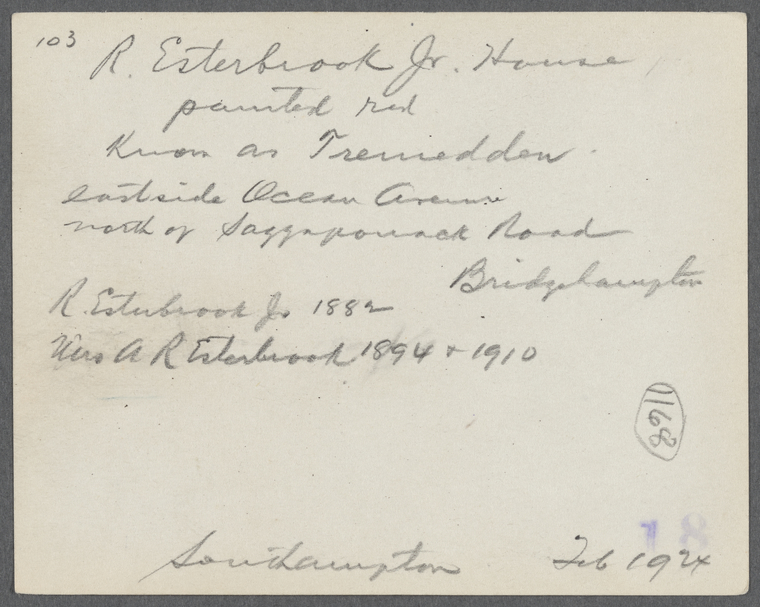 103
R. Esterbrook Jr. House
painted red
Known as Tremedden
east side Ocean Avenue
north of Saggaponack Road
Bridgehampton
R. Esterbrook Jr 1882
Mrs A R Esterbrook 1894 + 1910
1168
18
Southampton Feb 1924